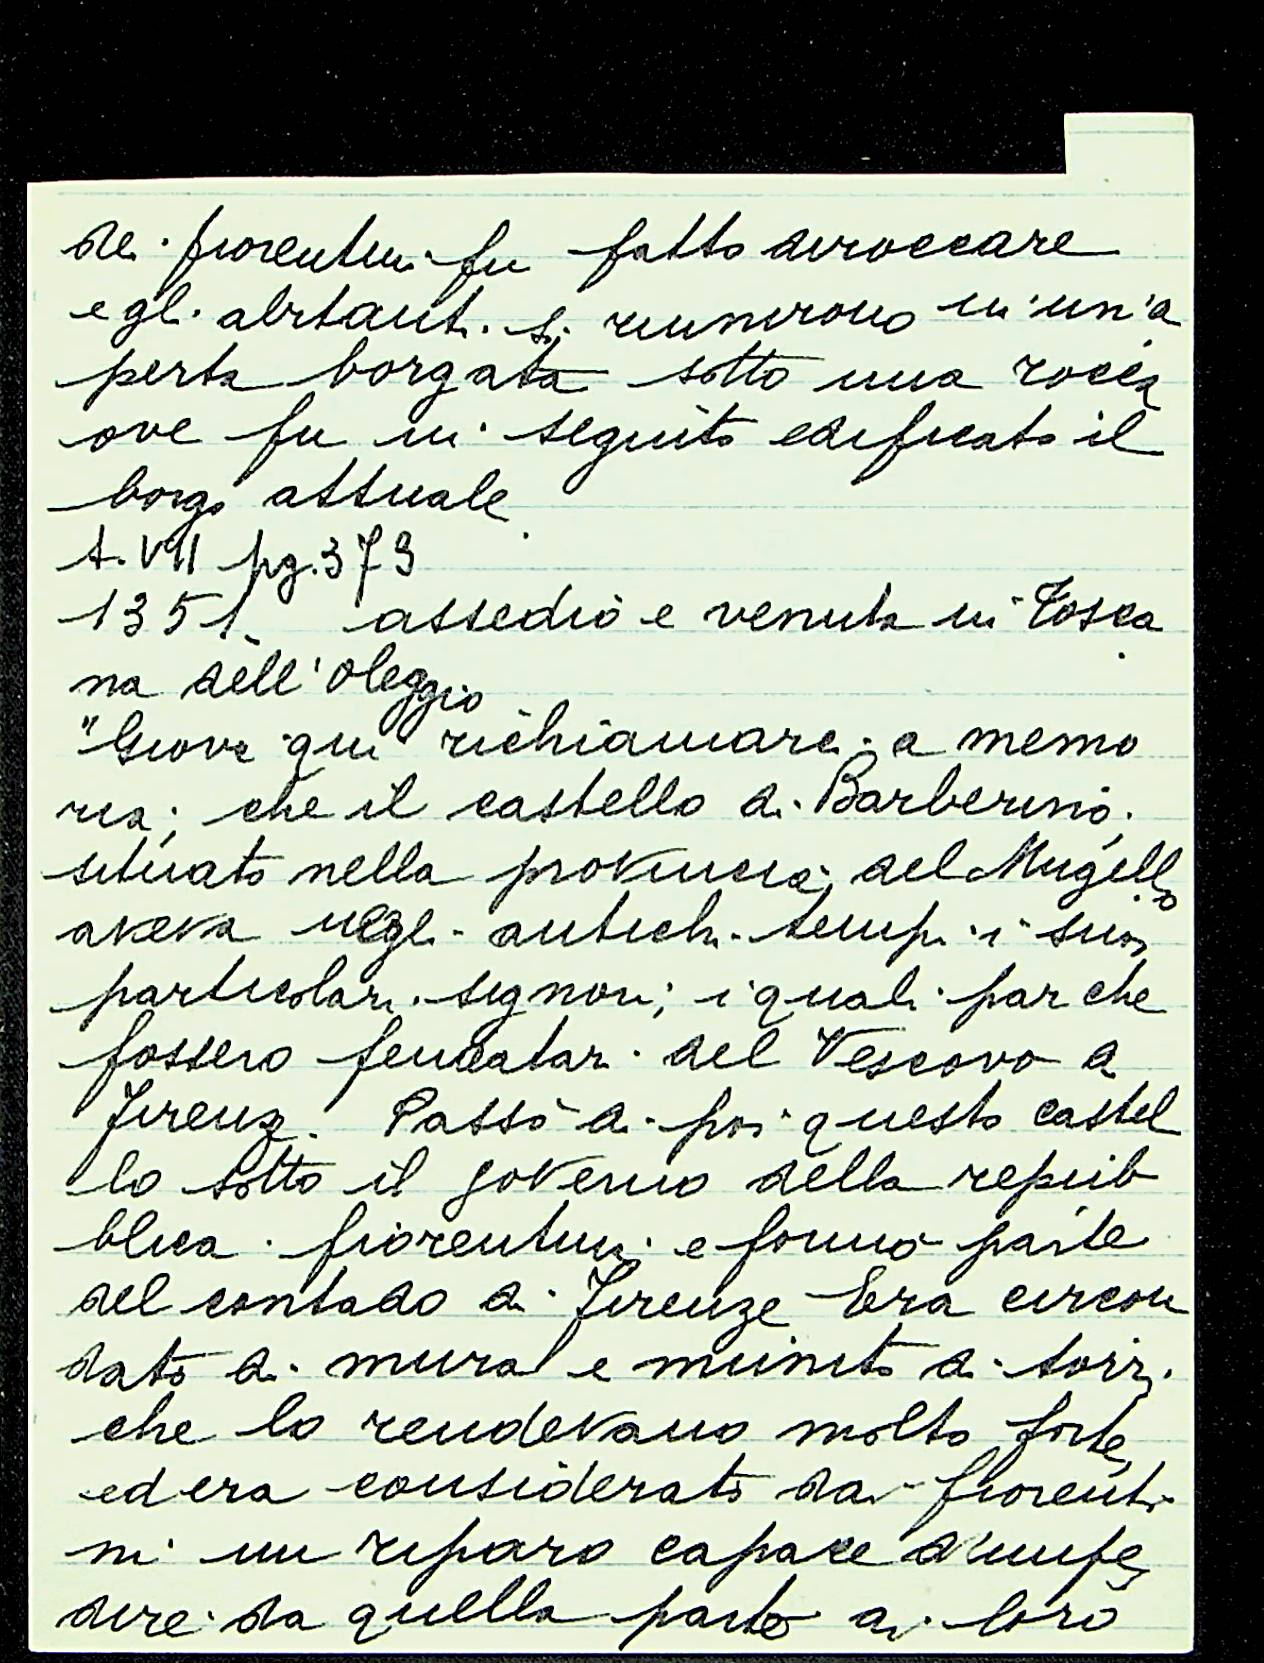 dei fiorentini fu fatto diroccare
e gli abitanti si riunirono in un'a
perta borgata sotto una rocca
ove fu in seguito edificato il
borgo attuale
t. VII pg. 379
1351 assedio e venuta in Tosca
na dell'Oleggio
"Giova qui richiamare a memo
ria; che il castello di Barberino,
situato nella provincia del Mugello
aveva negli antichi tempi i suoi
particolari signori; i quali par che
fossero feudatari del Vescovo di
Firenze. Passò di poi questo castel
lo sotto il governo della repub
blica fiorentina e formò parte
del contado di Firenze Era circon
dato di mura e munito di torri
che lo rendevano molto forte,
ed era considerato dai fiorenti
ni un riparo capace d'impe
dire da quella parte ai loro